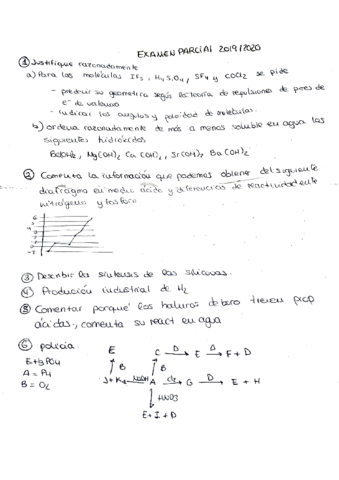 EXAMEN PARCIAL 2019/2020
① Justifique razonadamente
a) Para las moléculas IF5, H4SiO4, SF4 y COCl2 se pide
- predecir su geometría según la teoría de repulsiones de pares de
e- de valencia
- indicar los ángulos y polaridad de moleculas.
b) ordena razonadamente de más a menos soluble en agua los
siguientes hidróxidos
Be(OH)2, Mg(OH)2 Ca(OH)2, Sr(OH)2, Ba(OH)2
② Comenta la información que podemos obtener del siguiente
diafragma en medio ácido y diferencias de reactividad entre
nitrógeno y fósforo
③ Describir la síntesis de las siliconas.
④ Producción industrial de H2
⑤ Comentar porqué los haluros de boro tienen
ácidas, comenta su react en agua
⑥ policia.
E+H3PO4
A = P4
B = O2
E C D→ E Δ→ F + D
↑ B ↑ B
J + K ← NaOH A Cl2→ G D→ E + H
↓ HNO3
E + I + D